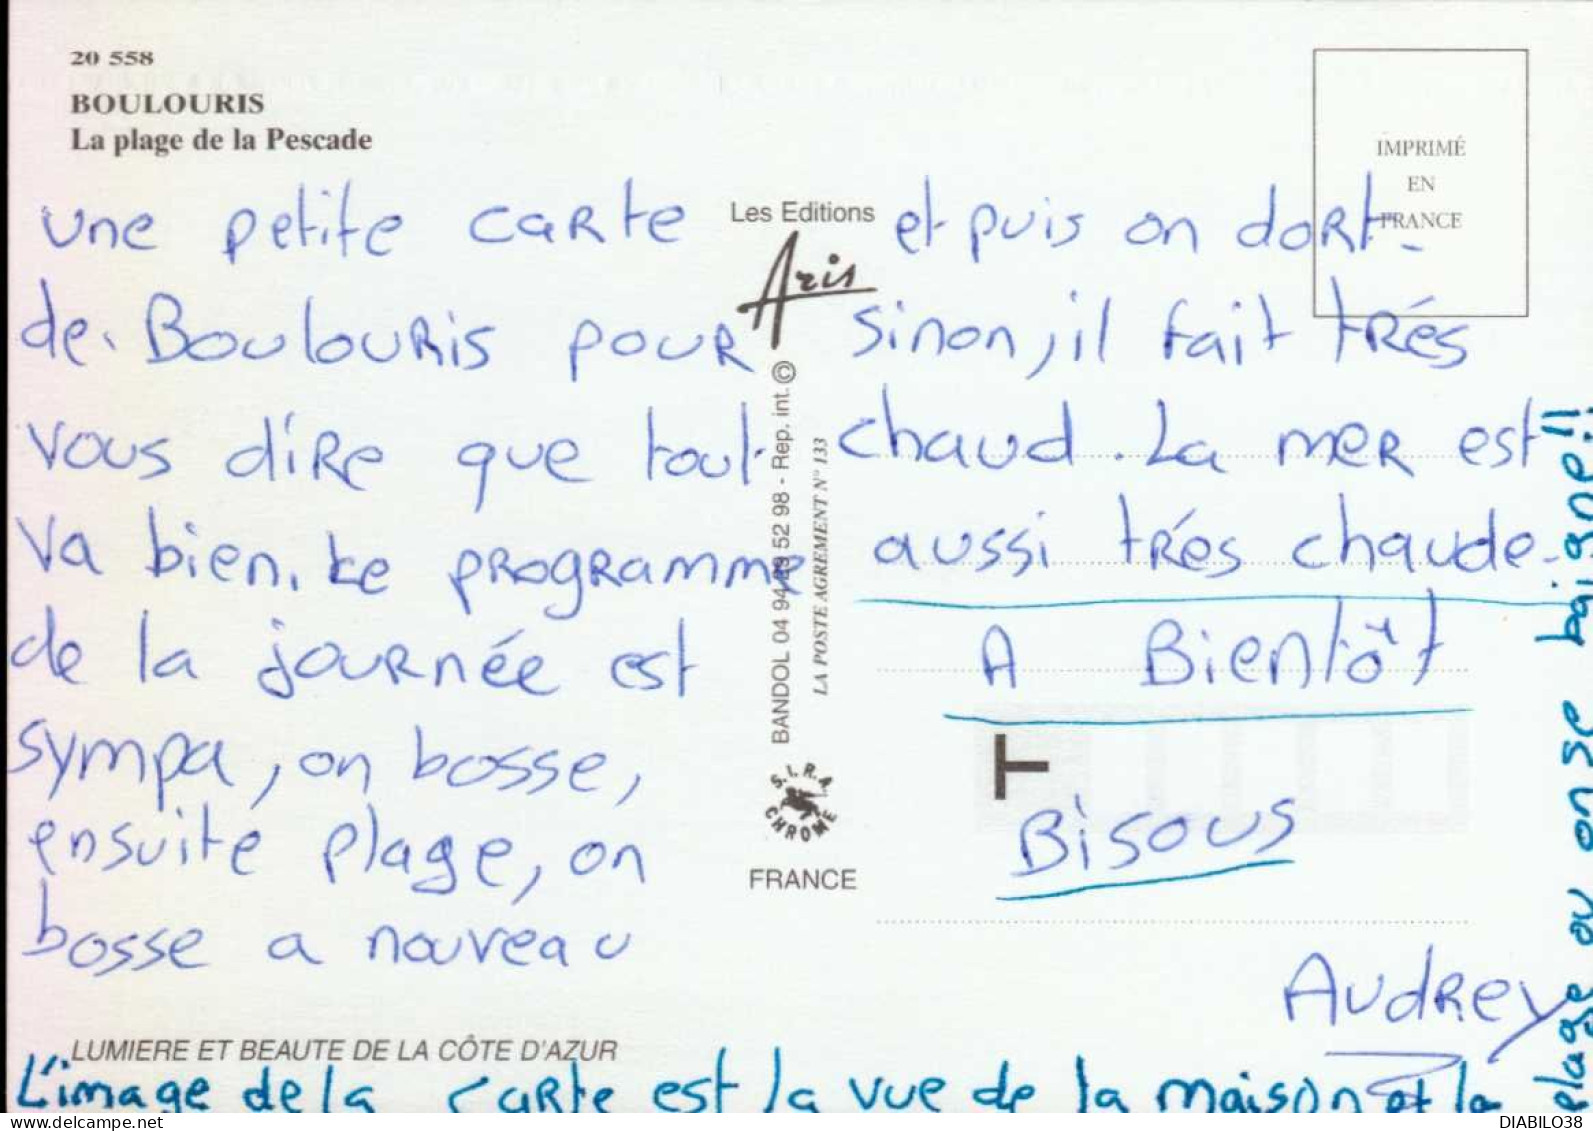 20 558
BOULOURIS
La plage de la Pescade
une petite carte
de. Boulouris pour
vous dire que tout
va bien. Le programme
de la journée est
sympa, on bosse,
ensuite plage, on
bosse a nouveau
LUMIERE ET BEAUTE DE LA CÔTE D'AZUR
Les Editions
Aris
BANDOL 04 94 52 98 - Rep. int. ©
LA POSTE AGREMENT N° 133
S.I.R.A
CHROME
FRANCE
IMPRIMÉ
EN
FRANCE
et puis on dort.
Sinon, il fait trés
chaud. La mer est
aussi trés chaude.
A Bientôt
T
Bisous
Audrey
L'image de la carte est la vue de la maison et la
plage ou on se baigne!!
DIABILO38